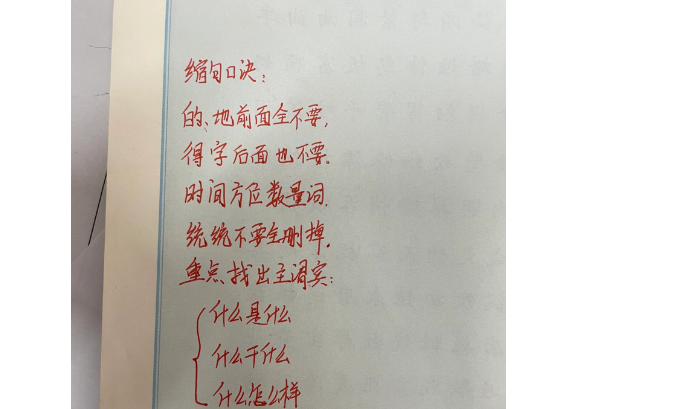 缩句口决:
的、地前面全不要,
得字后面也不要。
时间方位数量词.
统统不要全删掉.
重点找出主谓宾:
什么是什么
什么干什么
什么怎么样